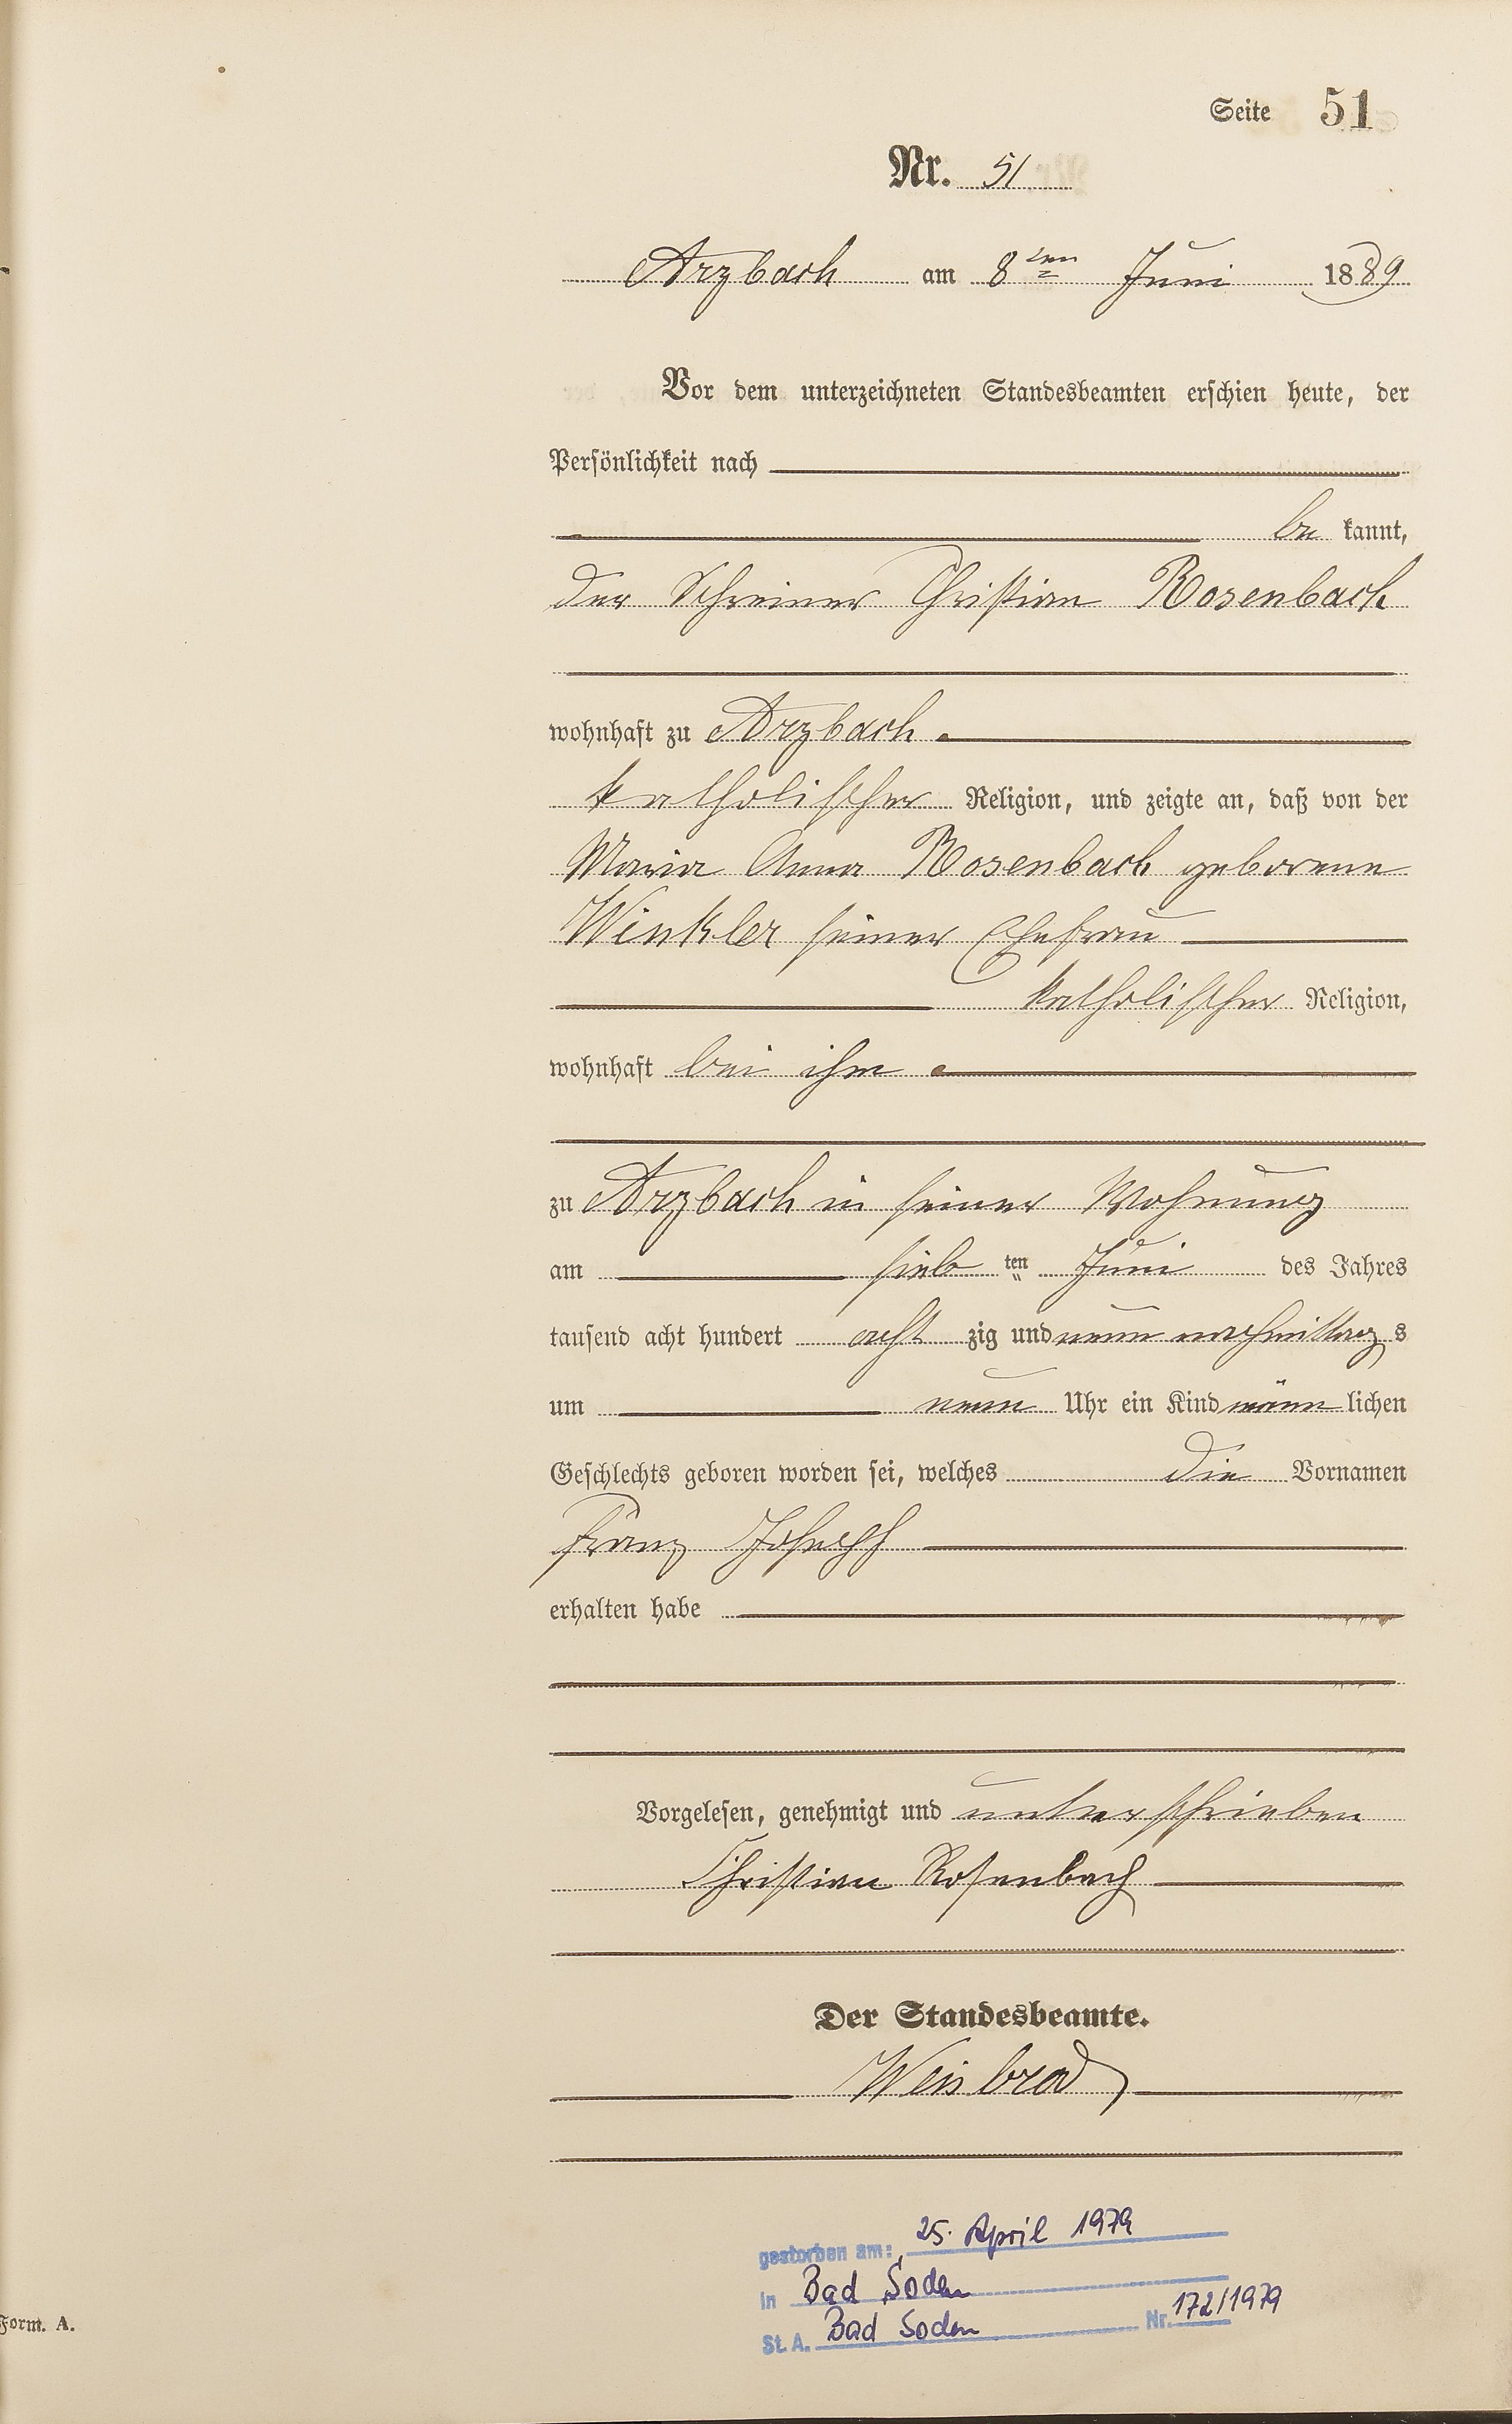 Seite 51
Nr. 51
Arzbach am 8ten Juni 1889
Vor dem unterzeichneten Standesbeamten erschien heute, der
Persönlichkeit nach
be kannt,
der Schreiner Christian Rosenbach
wohnhaft zu Arzbach
katholischer Religion, und zeigte an, daß von der
Maria Anna Rosenbach geborene
Winkler seiner Ehefrau
katholischer Religion,
wohnhaft bei ihm
zu Arzbach in seiner Wohnung
am sieb ten Juni des Jahres
tausend acht hundert acht zig und neun nachmittag s
um neun Uhr ein Kind männ lichen
Geschlechts geboren worden sei, welches die Vornamen
Franz Joseph
erhalten habe
Vorgelesen, genehmigt und unterschrieben
Christian Rosenbach
Der Standesbeamte.
Weisbrod
gestorben am: 25. April 1979
in Bad Soden
St. A. Bad Soden Nr. 172/1979
Form. A.